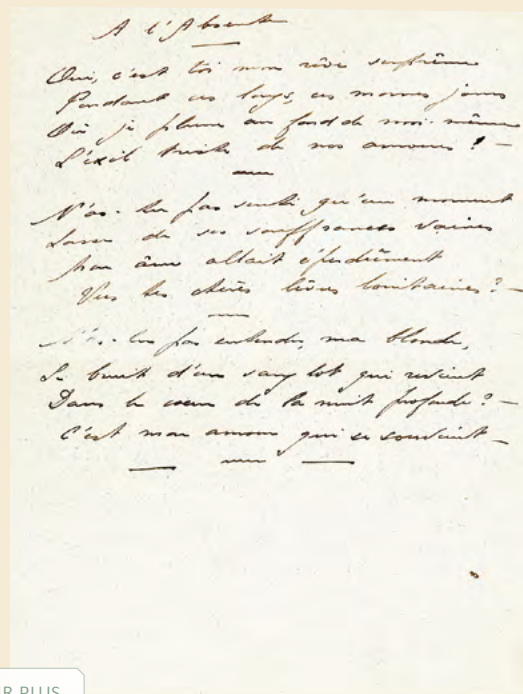 A l'Absent
Oui, c'est toi mon rêve suprême
Pendant ces longs, ces mornes jours
Où je pleure au fond de moi-même
L'exil triste de nos amours ! —
N'as-tu pas senti qu'un moment
Lasse de ses souffrances vaines
Mon âme allait éperdûment
Vers tes chères lèvres lointaines ? —
N'as-tu pas entendu, ma blonde,
Le bruit d'un sanglot qui revient
Dans le cœur de la nuit profonde ? —
C'est mon amour qui se souvient —
R PLUS